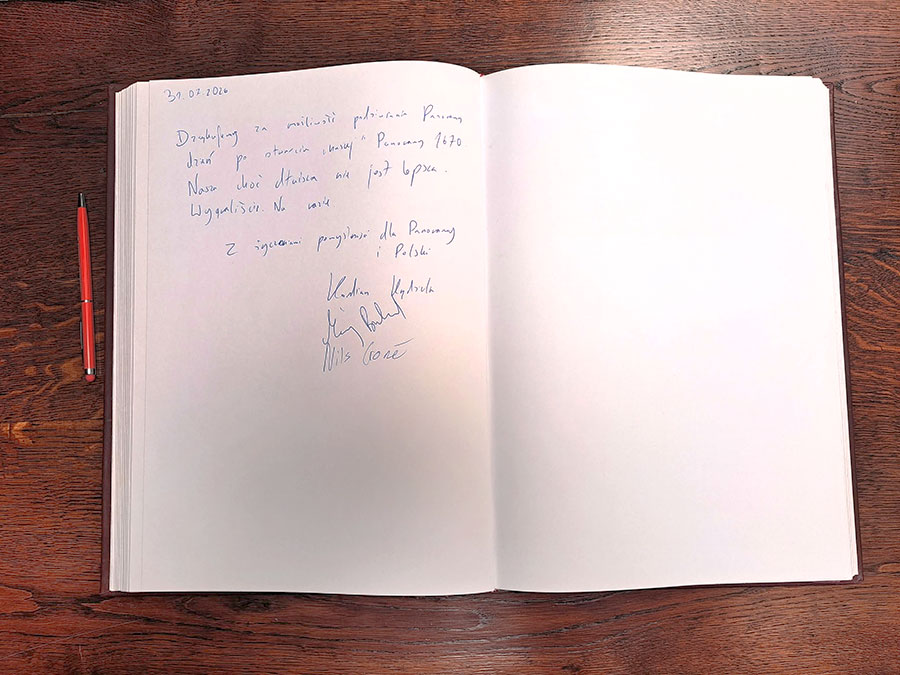 31.07.2026
Dziękujemy za możliwość podziwiania Panoramy
dzień po otwarciu „naszej" Panoramy 1670.
Nasza choć dłuższa nie jest lepsza.
Wygraliście. Na razie
Z życzeniami pomyślności dla Panoramy
i Polski
Nils